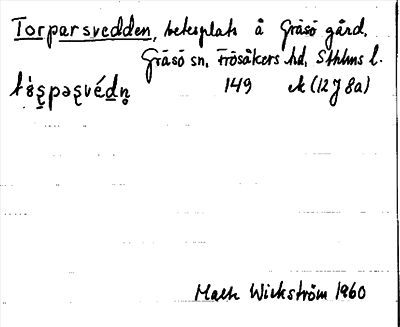 Torparsvedden, betesplats å Gräsö gård,
Gräsö sn, Frösåkers hd, Sthlms l.
149 ek (12J 8a)
Wickström 1960